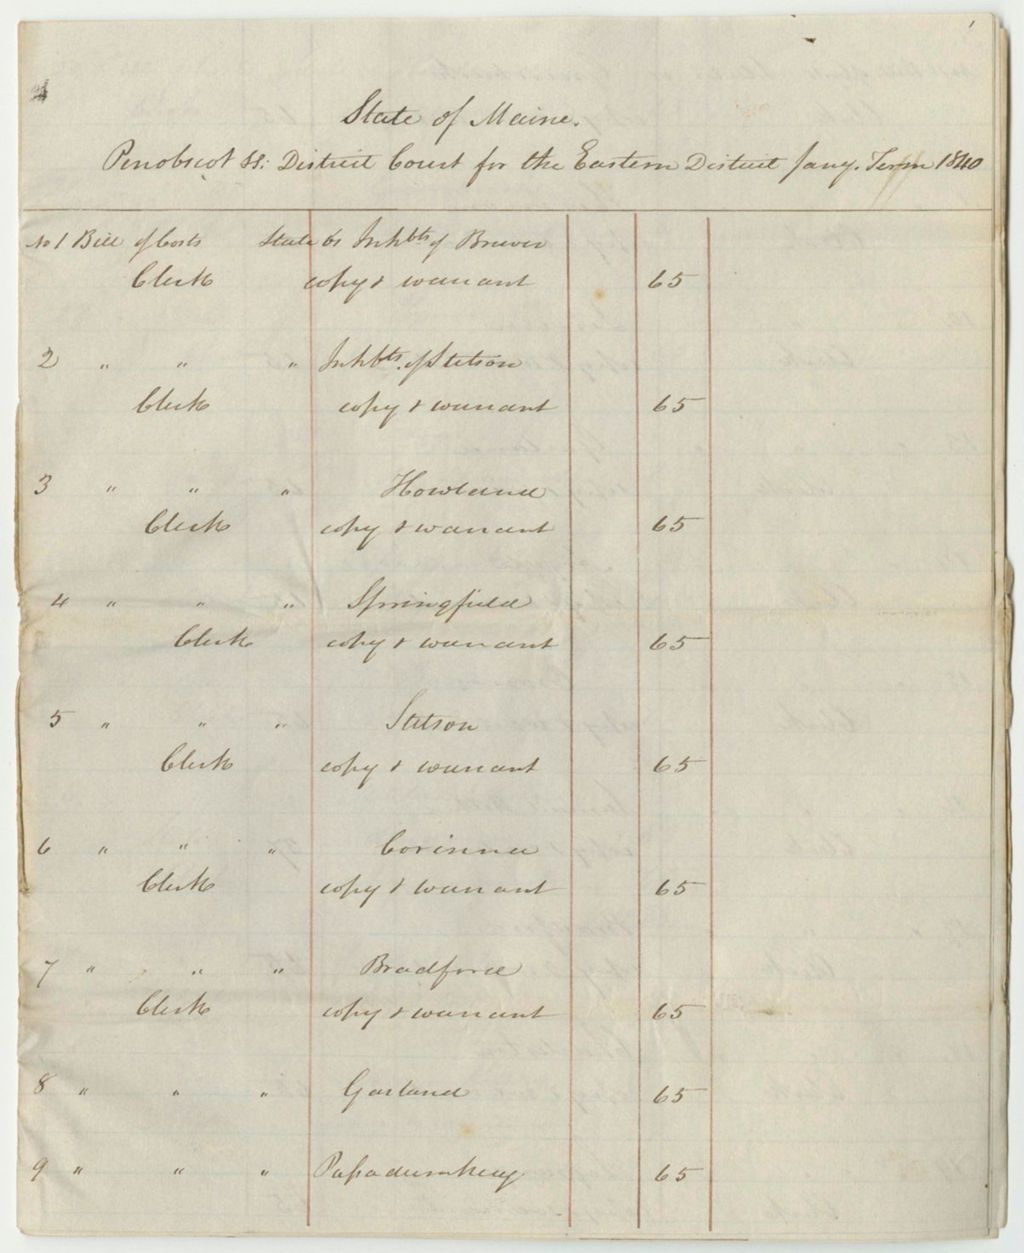 State of Maine.
Penobscot SS: District Court for the Eastern District Jany. Term 1840
No 1 Bill of Costs State vs Inhbts of Brewer
Clerk copy & warrant 65
2 " " " Inhbts. of Stetson
Clerk copy & warrant 65
3 " " " Howland
Clerk copy & warrant 65
4 " " " Springfield
Clerk copy & warrant 65
5 " " " Stetson
Clerk copy & warrant 65
6 " " " Corinna
Clerk copy & warrant 65
7 " " " Bradford
Clerk copy & warrant 65
8 " " " Garland 65
9 " " " Passadumkeag 65